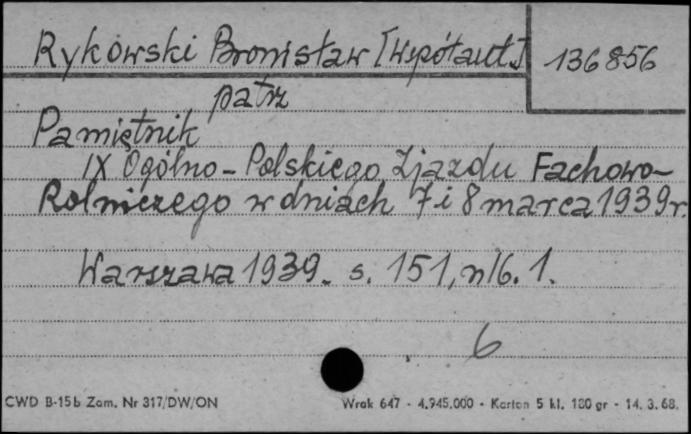 Rykowski Bronisław [Współaut.] 136856
patrz
Pamiętnik
IX Ogólno-Polskiego Zjazdu Fachowo-
Rolniczego w dniach 7 i 8 marca 1939r.
Warszawa 1939. s. 151, nlb. 1.
6
CWD B-15b Zam. Nr 317/DW/ON Wrak 647 - 4.945.000 - Karton 5 kl. 180 gr - 14. 3. 68.